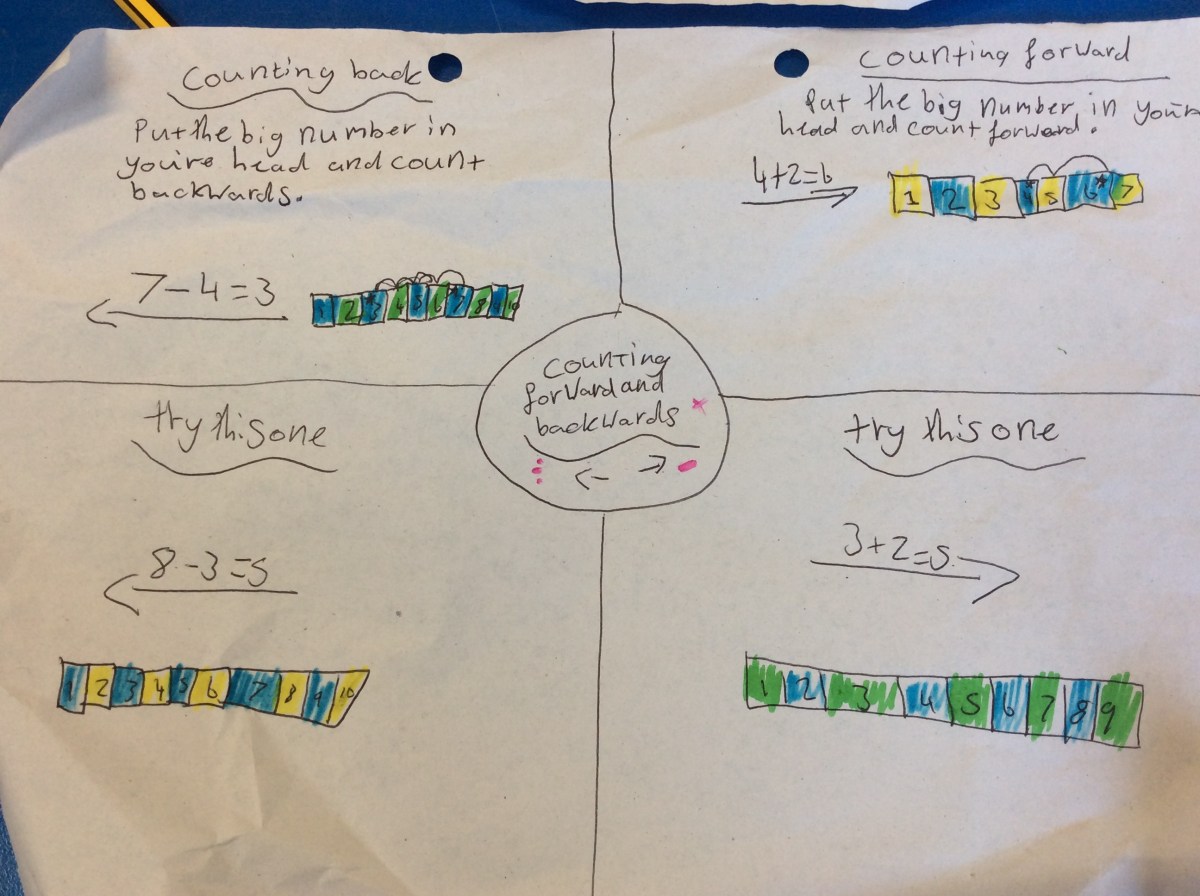 Counting back
Put the big number in
you're head and count
backwards.
7-4=3
1 2 3 4 5 6 7 8 9 10
Counting forward
Put the big number in your
head and count forward.
4+2=6
1 2 3 4 5 6 7
Counting
forward and
backwards
try this one
8-3=5
1 2 3 4 5 6 7 8 9 10
try this one
3+2=5
1 2 3 4 5 6 7 8 9